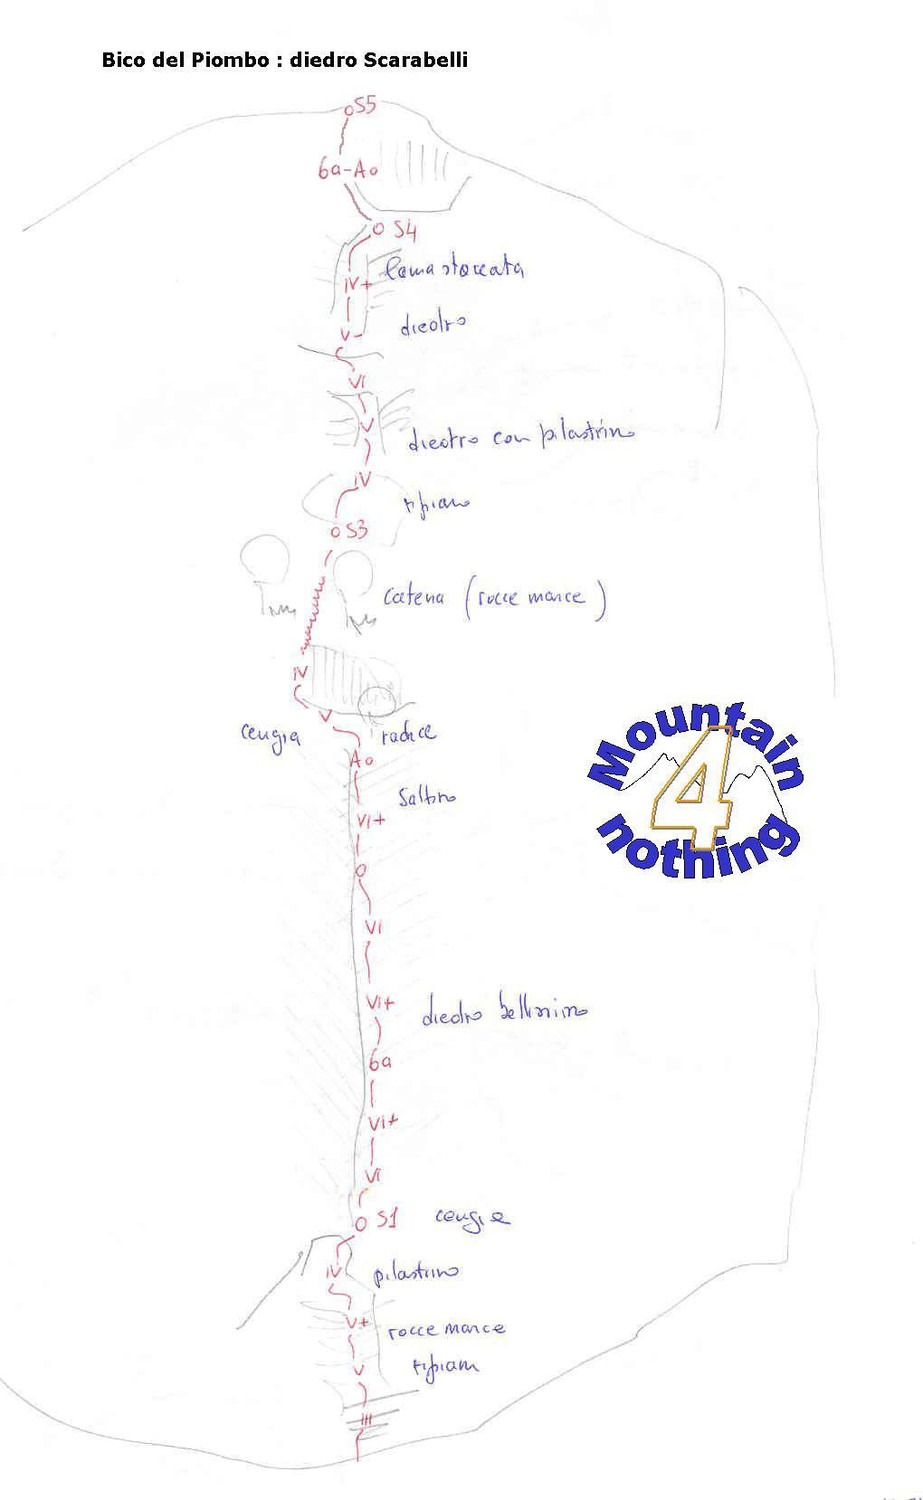 Bico del Piombo : diedro Scarabelli
S5
6a-A0
S4
lama staccata
IV+
diedro
V-
VI
V
diedro con pilastrino
IV
ripiano
S3
catena (rocce marce)
IV
V
cengia
radice
A0
Saltino
VI+
VI
VI+
diedro bellissimo
6a
VI+
VI
S1
cengia
IV
pilastrino
V+
rocce marce
ripiani
V
III
Mountain
4
nothing